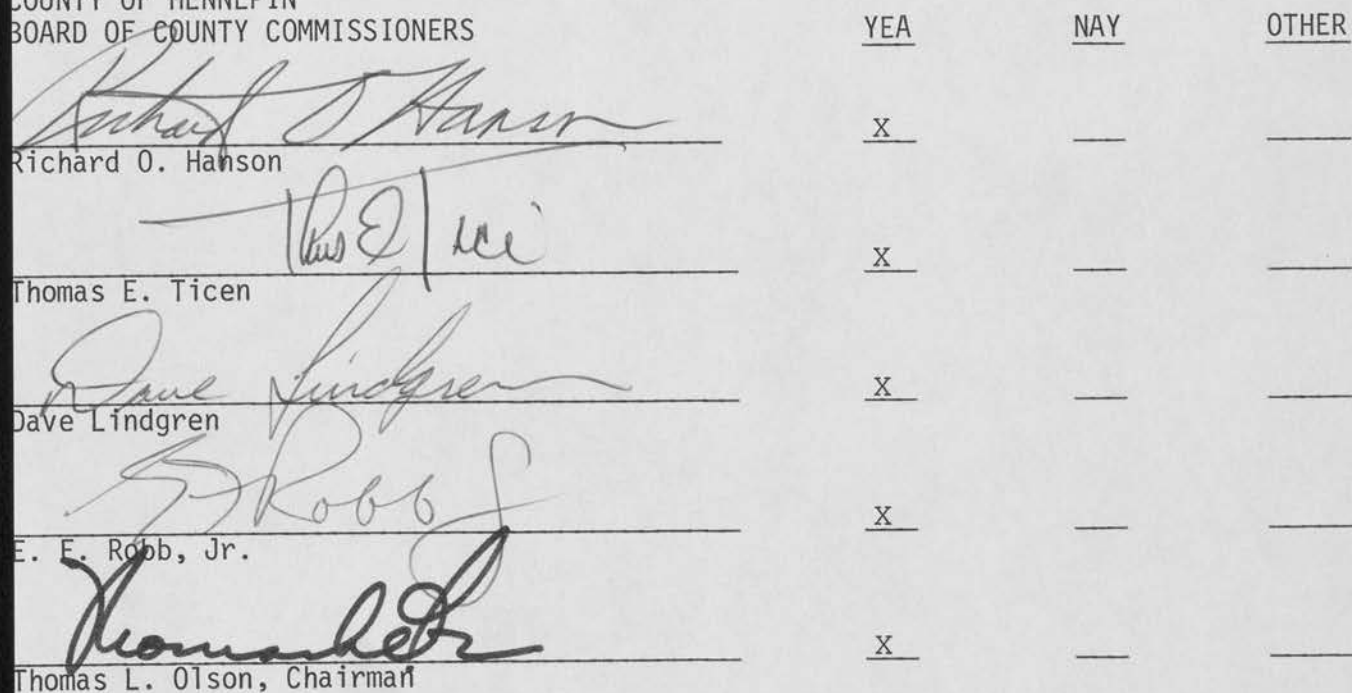 COUNTY OF HENNEPIN
BOARD OF COUNTY COMMISSIONERS YEA NAY OTHER
Richard O Hanson X
Richard O. Hanson
Thos E Tice X
Thomas E. Ticen
Dave Lindgren X
Dave Lindgren
E E Robb Jr X
E. E. Robb, Jr.
Thomas L Olson X
Thomas L. Olson, Chairman